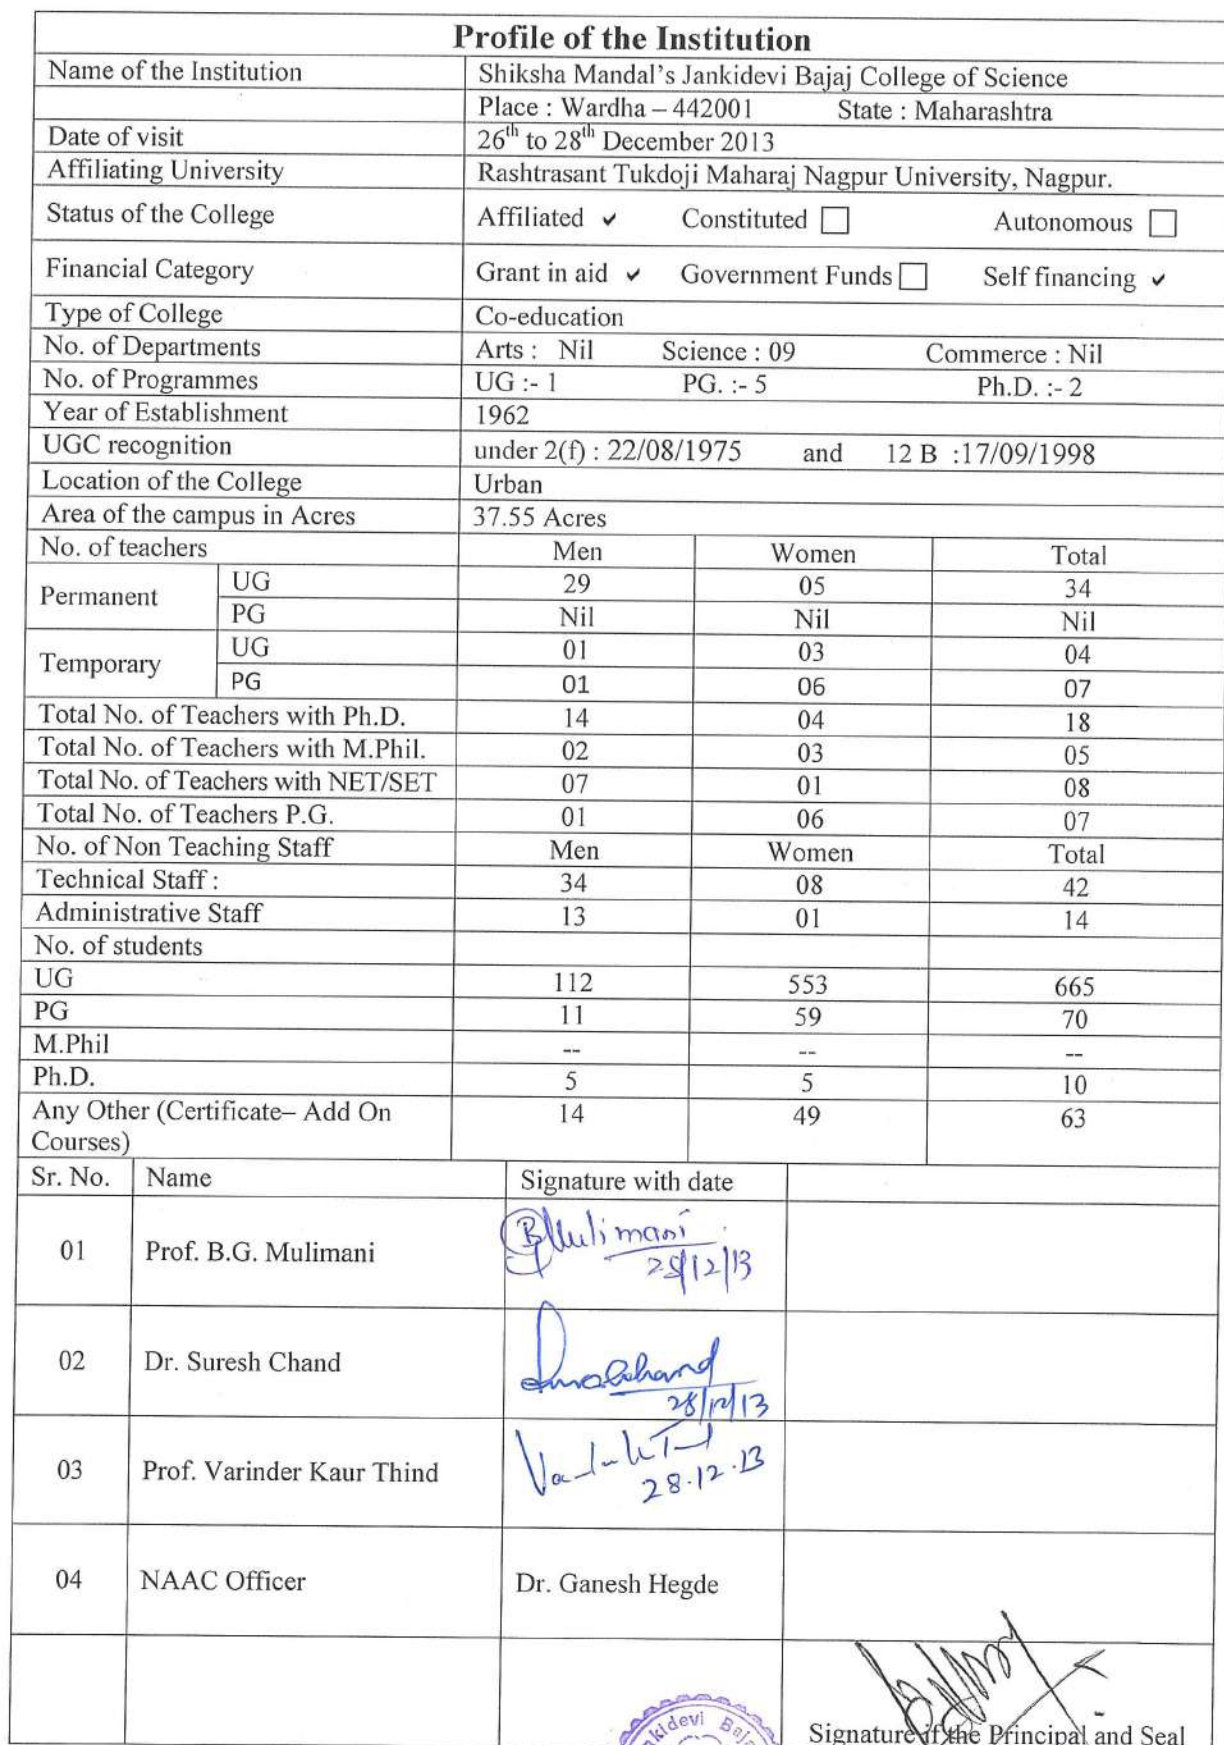 Profile of the Institution
Name of the Institution Shiksha Mandal's Jankidevi Bajaj College of Science
Place : Wardha – 442001 State : Maharashtra
Date of visit 26th to 28th December 2013
Affiliating University Rashtrasant Tukdoji Maharaj Nagpur University, Nagpur.
Status of the College Affiliated ✓ Constituted ☐ Autonomous ☐
Financial Category Grant in aid ✓ Government Funds ☐ Self financing ✓
Type of College Co-education
No. of Departments Arts : Nil Science : 09 Commerce : Nil
No. of Programmes UG :- 1 PG. :- 5 Ph.D. :- 2
Year of Establishment 1962
UGC recognition under 2(f) : 22/08/1975 and 12 B :17/09/1998
Location of the College Urban
Area of the campus in Acres 37.55 Acres
No. of teachers Men Women Total
Permanent UG 29 05 34
PG Nil Nil Nil
Temporary UG 01 03 04
PG 01 06 07
Total No. of Teachers with Ph.D. 14 04 18
Total No. of Teachers with M.Phil. 02 03 05
Total No. of Teachers with NET/SET 07 01 08
Total No. of Teachers P.G. 01 06 07
No. of Non Teaching Staff Men Women Total
Technical Staff : 34 08 42
Administrative Staff 13 01 14
No. of students
UG 112 553 665
PG 11 59 70
M.Phil -- -- --
Ph.D. 5 5 10
Any Other (Certificate– Add On 14 49 63
Courses)
Sr. No. Name Signature with date
01 Prof. B.G. Mulimani BMulimani
28/12/13
02 Dr. Suresh Chand
28/12/13
03 Prof. Varinder Kaur Thind
28.12.13
04 NAAC Officer Dr. Ganesh Hegde
Signature if the Principal and Seal